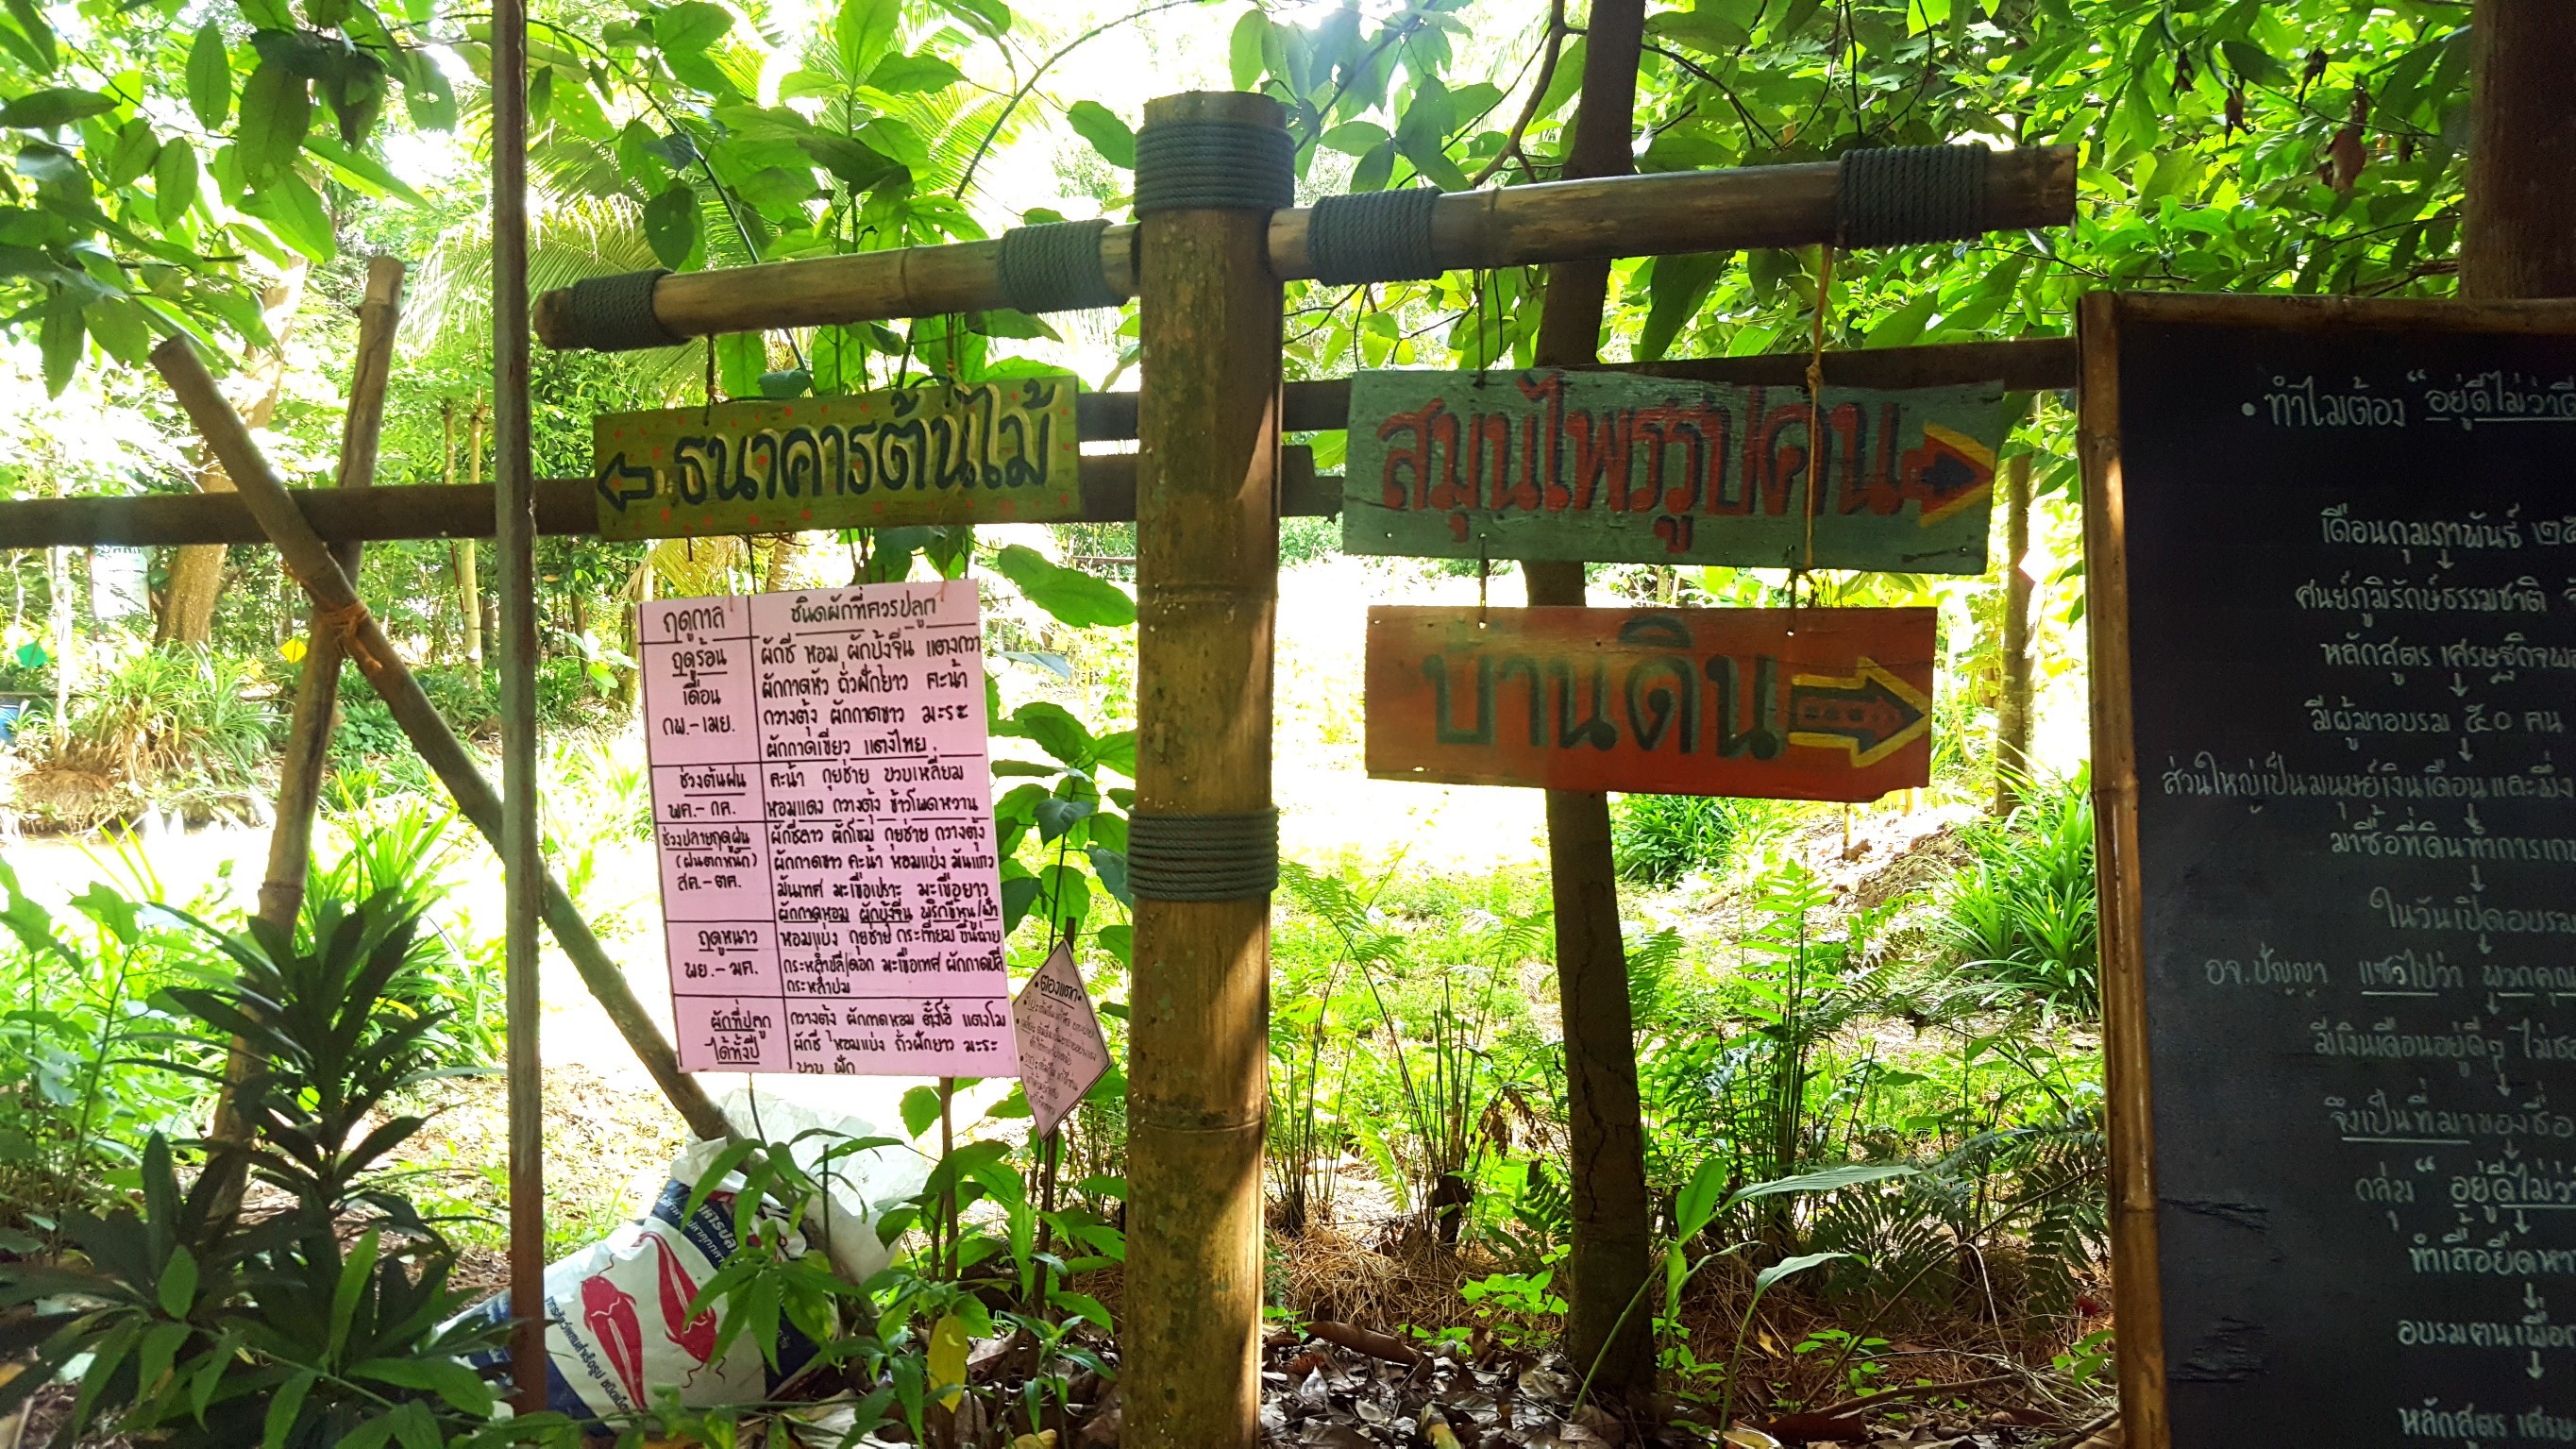 ธนาคารต้นไม้
สมุนไพรรูปคน
บ้านดิน
ฤดูกาล ชนิดผักที่ควรปลูก
ฤดูร้อน ผักชี หอม ผักบุ้งจีน แตงกวา
เดือน ผักกาดหัว ถั่วฝักยาว คะน้า
กพ.-เมย. กวางตุ้ง ผักกาดขาว มะระ
ผักกาดเขียว แตงไทย
ช่วงต้นฝน คะน้า กุยช่าย บวบเหลี่ยม
พค.-กค. หอมแดง กวางตุ้ง ข้าวโพดหวาน
ช่วงปลายฤดูฝน ผักชีลาว ผักโขม กุยช่าย กวางตุ้ง
(ฝนตกหนัก) ผักกาดขาว คะน้า หอมแบ่ง มันแกว
สค.-ตค. มันเทศ มะเขือเปราะ มะเขือยาว
ผักกาดหอม ผักบุ้งจีน พริกขี้หนู/ฟ้า
ฤดูหนาว หอมแบ่ง กุยช่าย กระเทียม ขึ้นฉ่าย
พย.-มค. กระหล่ำปลี/ดอก มะเขือเทศ ผักกาดปลี
กระหล่ำปม
ผักที่ปลูก กวางตุ้ง ผักกาดหอม ตั้งโอ๋ แตงโม
ได้ทั้งปี ผักชี หอมแบ่ง ถั่วฝักยาว มะระ
บวบ ฟัก
•ทำไมต้อง "อยู่ดีไม่ว่าดี
เดือนกุมภาพันธ์ ๒๕
ศนย์ภูมิรักษ์ธรรมชาติ
หลักสูตร เศรษฐกิจพอ
มีผู้มาอบรม ๕๐ คน
ส่วนใหญ่เป็นมนุษย์เงินเดือนและมี
มาซื้อที่ดินทำการเกษ
ในวันเปิดอบรม
อจ.ปัญญา แซวไปว่า พวกคุณ
มีเงินเดือนอยู่ดีๆ ไม่ช
จึงเป็นที่มาของชื่อ
กลุ่ม "อยู่ดีไม่ว่
ทำเสื้อยืดหา
อบรมคนเพื่อ
หลักสูตร เศร